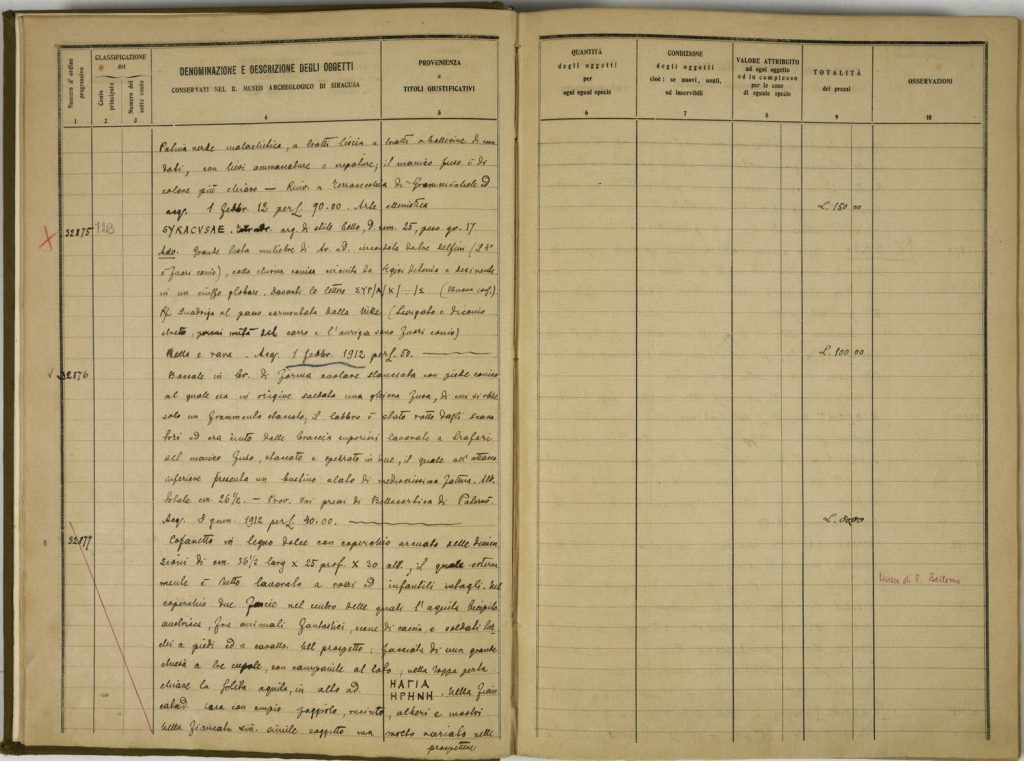 Numero d'ordine progressivo
CLASSIFICAZIONE
del
Conto principale
Numero del sotto conto
DENOMINAZIONE E DESCRIZIONE DEGLI OGGETTI
CONSERVATI NEL R. MUSEO ARCHEOLOGICO DI SIRACUSA
PROVENIENZA
e
TITOLI GIUSTIFICATIVI
1 2 3 4 5
Patina verde malachistica, a tratti liscia a tratti a
con lievi ammaccature e crepature; il manico fuso è di
colore più chiaro — Rinv. a di Grammichele ed
acq. 1 Febbr. 12 per L. 90.00. Arte
32875 SYRACVSAE. arg. di stile bello, D. mm. 25, peso gr. 17
Grande testa muliebre di Ar. a d. circondata da tre delfini (il 4°
è fuori conio), colla chioma
in un ciuffo globare. Davanti le lettere ΣΥΡ/Α/Κ/.../Σ
℞ Quadriga al passo coronata dalla Nike (Levigato e
carro e l'auriga sono fuori conio)
Bella e rara. Acq. 1 febbr. 1912 per L. 50.
32876 Boccale in br. di forma ovolare slanciata con piede conico
al quale era in origine saldata una fusa, di cui si ebbe
solo un frammento staccato; il labbro è stato rotto dagli scava
tori ed era cinto dalle braccia superiori lavorate a
del manico fuso, staccato e spezzato in due, il quale all'attacco
inferiore presenta un bustino alato di mediocrissima fattura. Alt.
totale cm. 26½. — Prov. dai pressi di di Paternò.
Acq. 8 1912 per L. 40.00.
32877 Cofanetto in legno dolce con coperchio armato delle dimen
sioni di cm. 36½ larg x 25 prof. x 30 alt., il quale esterna
mente è tutto lavorato a rozzi ed infantili intagli. Nel
coperchio due fascie nel centro delle quali l'aquila bicipite
austriaca, fra animali fantastici, scene di caccia e soldati tur
chi a piedi ed a cavallo. Nel prospetto: facciata di una grande
chiesa a tre cupole, con campanile al lato; nella toppa
chiave la solita aquila, in alto ad. ΗΑΓΙΑ
ΗΡΗΝΗ. Nella fian
cata d. casa con ampio poggiolo, recinto, alberi e mostri
nella fiancata sin. simile soggetto ma molto variato nelle
prospettive
QUANTITÀ
degli oggetti
per
ogni egual specie
CONDIZIONE
degli oggetti
cioè: se nuovi, usati,
od inservibili
VALORE ATTRIBUITO
ad ogni oggetto
ed in complesso
per le cose
di eguale specie
TOTALITÀ
dei prezzi
OSSERVAZIONI
6 7 8 9 10
L. 150 00
L. 100 00
Museo di P. Bellomo